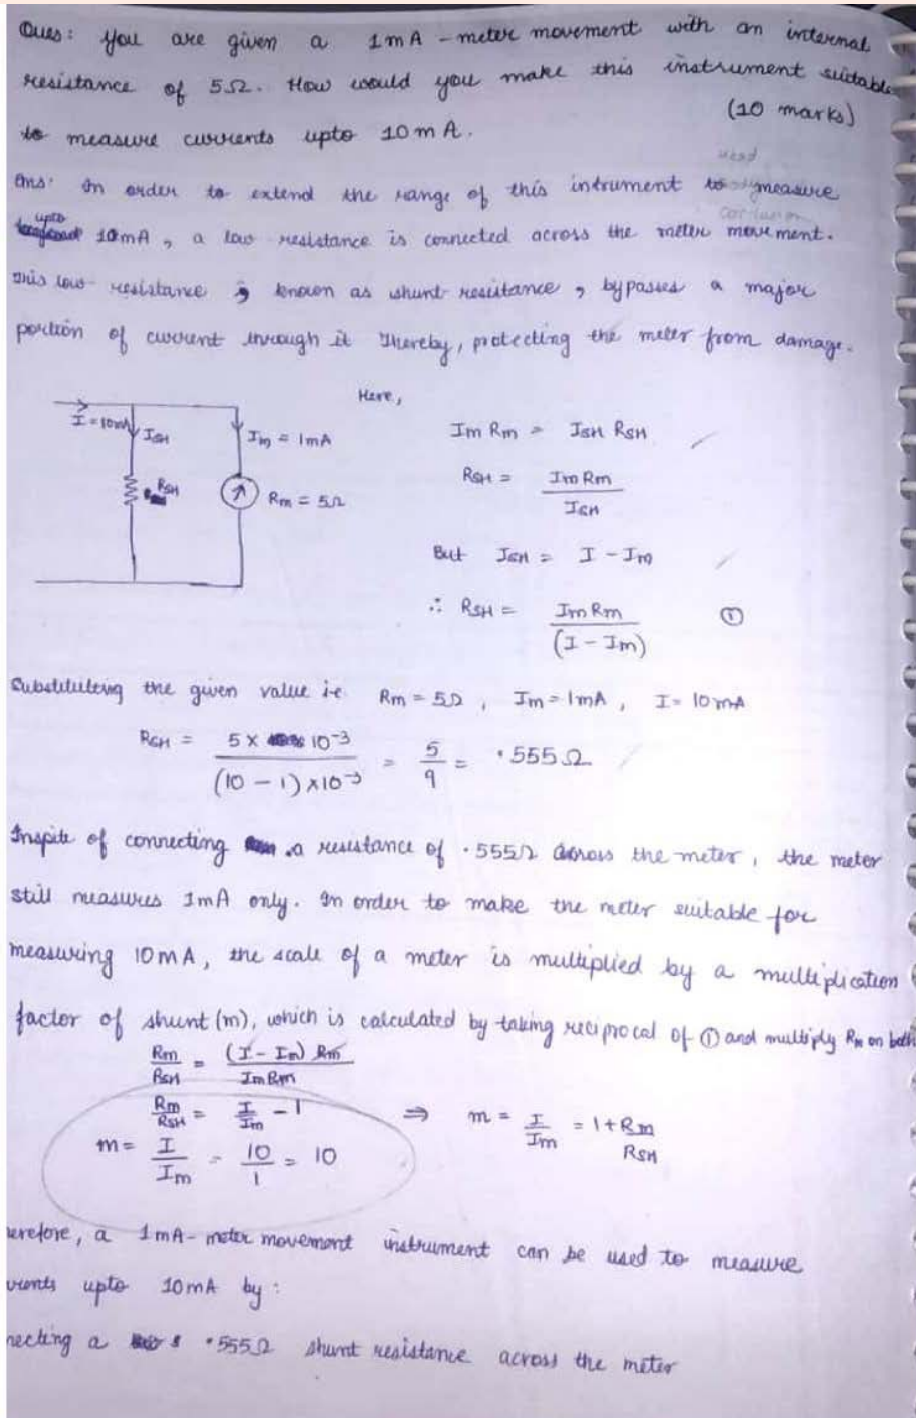 Ques: You are given a 1mA-meter movement with an internal
resistance of 5Ω. How would you make this instrument suitable
(10 marks)
to measure currents upto 10mA.
Ans: In order to extend the range of this intrument to measure
upto 10mA, a low resistance is connected across the meter movement.
This low resistance, known as shunt resistance, bypasses a major
portion of current through it thereby, protecting the meter from damage.
Here,
I = 10mA
ISH
Im = 1mA
RSH
Rm = 5Ω
Im Rm = ISH RSH
RSH = Im Rm / ISH
But ISH = I - Im
∴ RSH = Im Rm / (I - Im) ①
Substituteing the given value i.e. Rm = 5Ω, Im = 1mA, I = 10mA
RSH = 5 × 10⁻³ / (10 - 1) × 10⁻³ = 5/9 = .555Ω
Inspite of connecting a resistance of .555Ω across the meter, the meter
still measures 1mA only. In order to make the meter suitable for
measuring 10mA, the scale of a meter is multiplied by a multiplication
factor of shunt (m), which is calculated by taking reciprocal of ① and multiply Rm on both
Rm/RSH = (I - Im) Rm / Im Rm
Rm/RSH = I/Im - 1 ⇒ m = I/Im = 1 + Rm/RSH
m = I/Im = 10/1 = 10
erefore, a 1mA-meter movement instrument can be used to measure
rrents upto 10mA by:
necting a .555Ω shunt resistance across the meter